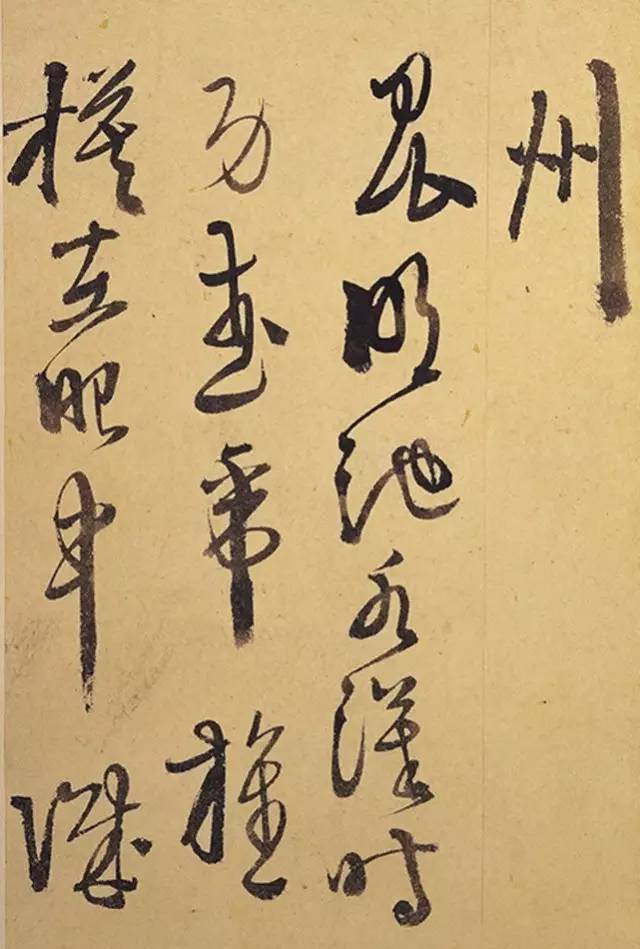 州
昆明池水漢時
功武帝旌
旗在眼中織